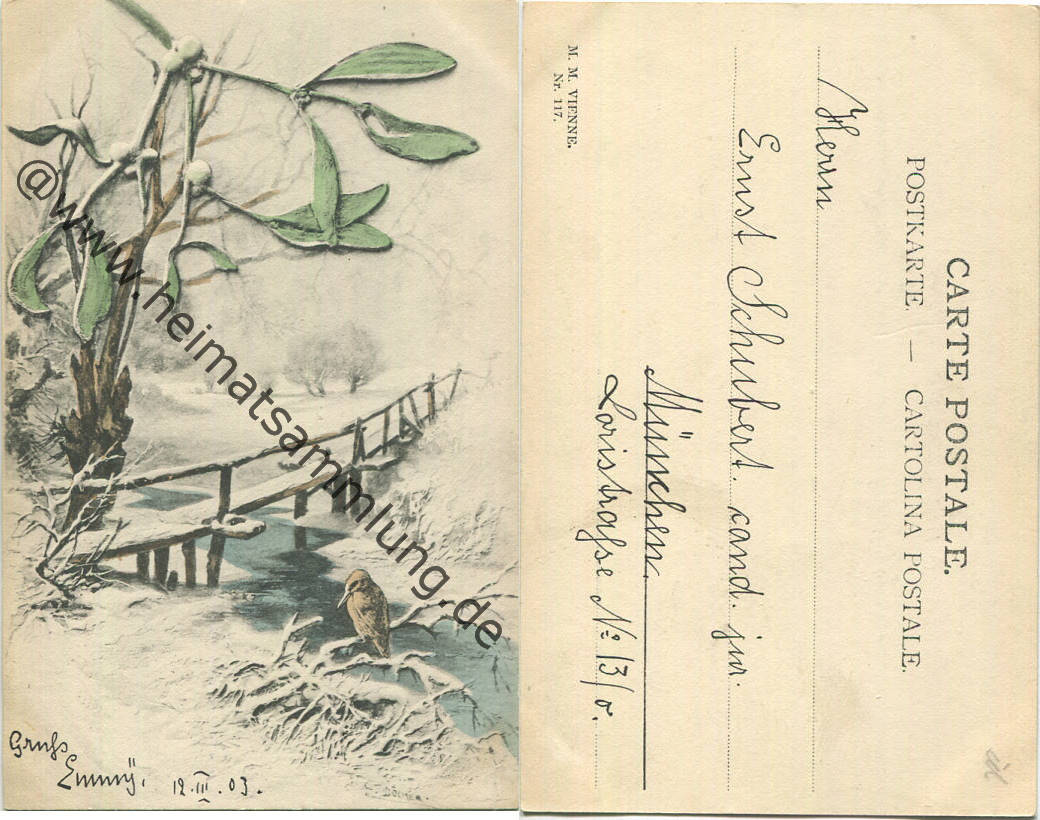 @www.heimatsammlung.de
Gruß
Emmÿ.
12.III.03.
M. M. VIENNE.
Nr. 117.
CARTE POSTALE.
POSTKARTE. — CARTOLINA POSTALE.
Herrn
Ernst Schubert. cand. jur.
München.
Loristraße No 13/0.